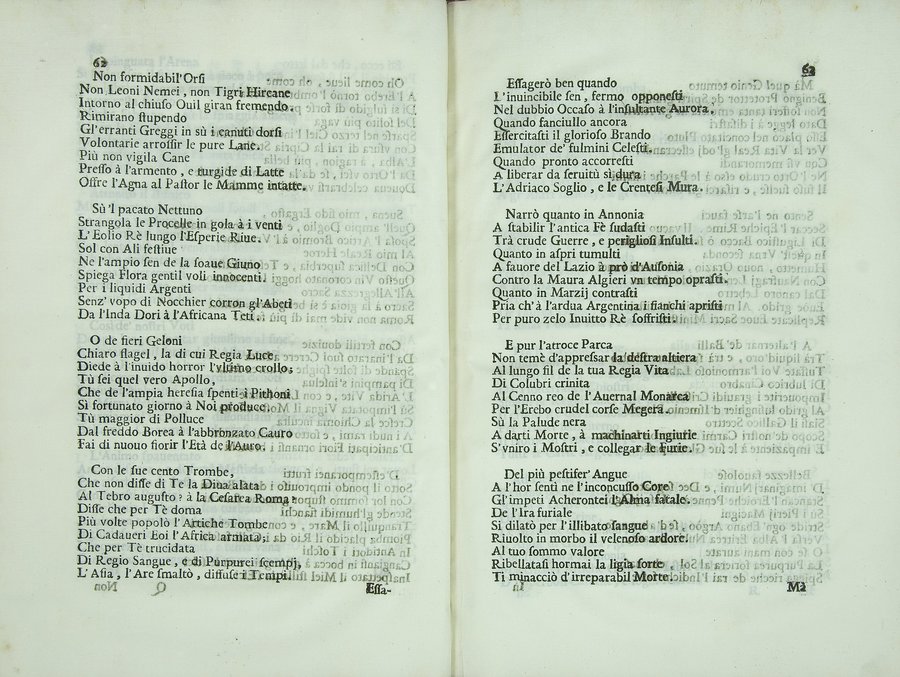 62
Non formidabil'Orsi
Non Leoni Nemei, non Tigri Hircane
Intorno al chiuso Ouil giran fremendo.
Rimirano stupendo
Gl'erranti Greggi in sù i canuti dorsi
Volontarie arrossir le pure Lane.
Più non vigila Cane
Presso à l'armento, e turgide di Latte
Offre l'Agna al Pastor le Mamme intatte.
Sù 'l pacato Nettuno
Strangola le Procelle in gola à i venti
L'Eolio Rè lungo l'Esperie Riue.
Sol con Ali festiue
Ne l'ampio sen de la soaue Giuno
Spiega Flora gentil voli innocenti.
Per i liquidi Argenti
Senz' vopo di Nocchier corron gl'Abeti
Da l'Inda Dori à l'Africana Teti.
O de fieri Geloni
Chiaro flagel, la di cui Regia Luce
Diede à l'inuido horror l'vltimo crollo;
Tù sei quel vero Apollo,
Che de l'ampia heresia spenti i Pithoni
Sì fortunato giorno à Noi produce.
Tù maggior di Polluce
Dal freddo Borea à l'abbronzato Cauro
Fai di nuouo fiorir l'Età de l'Auro.
Con le sue cento Trombe,
Che non disse di Te la Diua alata
Al Tebro augusto? à la Cesarea Roma?
Disse che per Tè doma
Più volte popolò l'Artiche Tombe
Di Cadaueri Eoi l'Africa armata;
Che per Tè trucidata
Di Regio Sangue, e di Purpurei scempj,
L'Asia, l'Are smaltò, diffuse i Tempi.
Essa-
63
Essagerò ben quando
L'inuincibile sen, fermo opponesti
Nel dubbio Occaso à l'insultante Aurora.
Quando fanciullo ancora
Essercitasti il glorioso Brando
Emulator de' fulmini Celesti.
Quando pronto accorresti
A liberar da seruitù sì dura
L'Adriaco Soglio, e le Cretesi Mura.
Narrò quanto in Annonia
A stabilir l'antica Fè sudasti
Trà crude Guerre, e perigliosi Insulti.
Quanto in aspri tumulti
A fauore del Lazio à prò d'Ausonia
Contro la Maura Algieri vn tempo oprasti.
Quanto in Marzij contrasti
Pria ch'à l'ardua Argentina i fianchi apristi
Per puro zelo Inuitto Rè soffristi.
E pur l'atroce Parca
Non temè d'appressar la destra altiera
Al lungo fil de la tua Regia Vita
Di Colubri crinita
Al Cenno reo de l'Auernal Monarca
Per l'Erebo crudel corse Megera.
Sù la Palude nera
A darti Morte, à machinarti Ingiurie
S'vniro i Mostri, e collegar le Furie.
Del più pestifer'Angue
A l'hor sentì ne l'inconcusso Core
Gl'impeti Acherontei l'Alma fatale.
De l'Ira furiale
Si dilatò per l'illibato sangue
Riuolto in morbo il velenoso ardore.
Al tuo sommo valore
Ribellatasi hormai la ligia sorte
Ti minacciò d'irreparabil Morte.
Mà